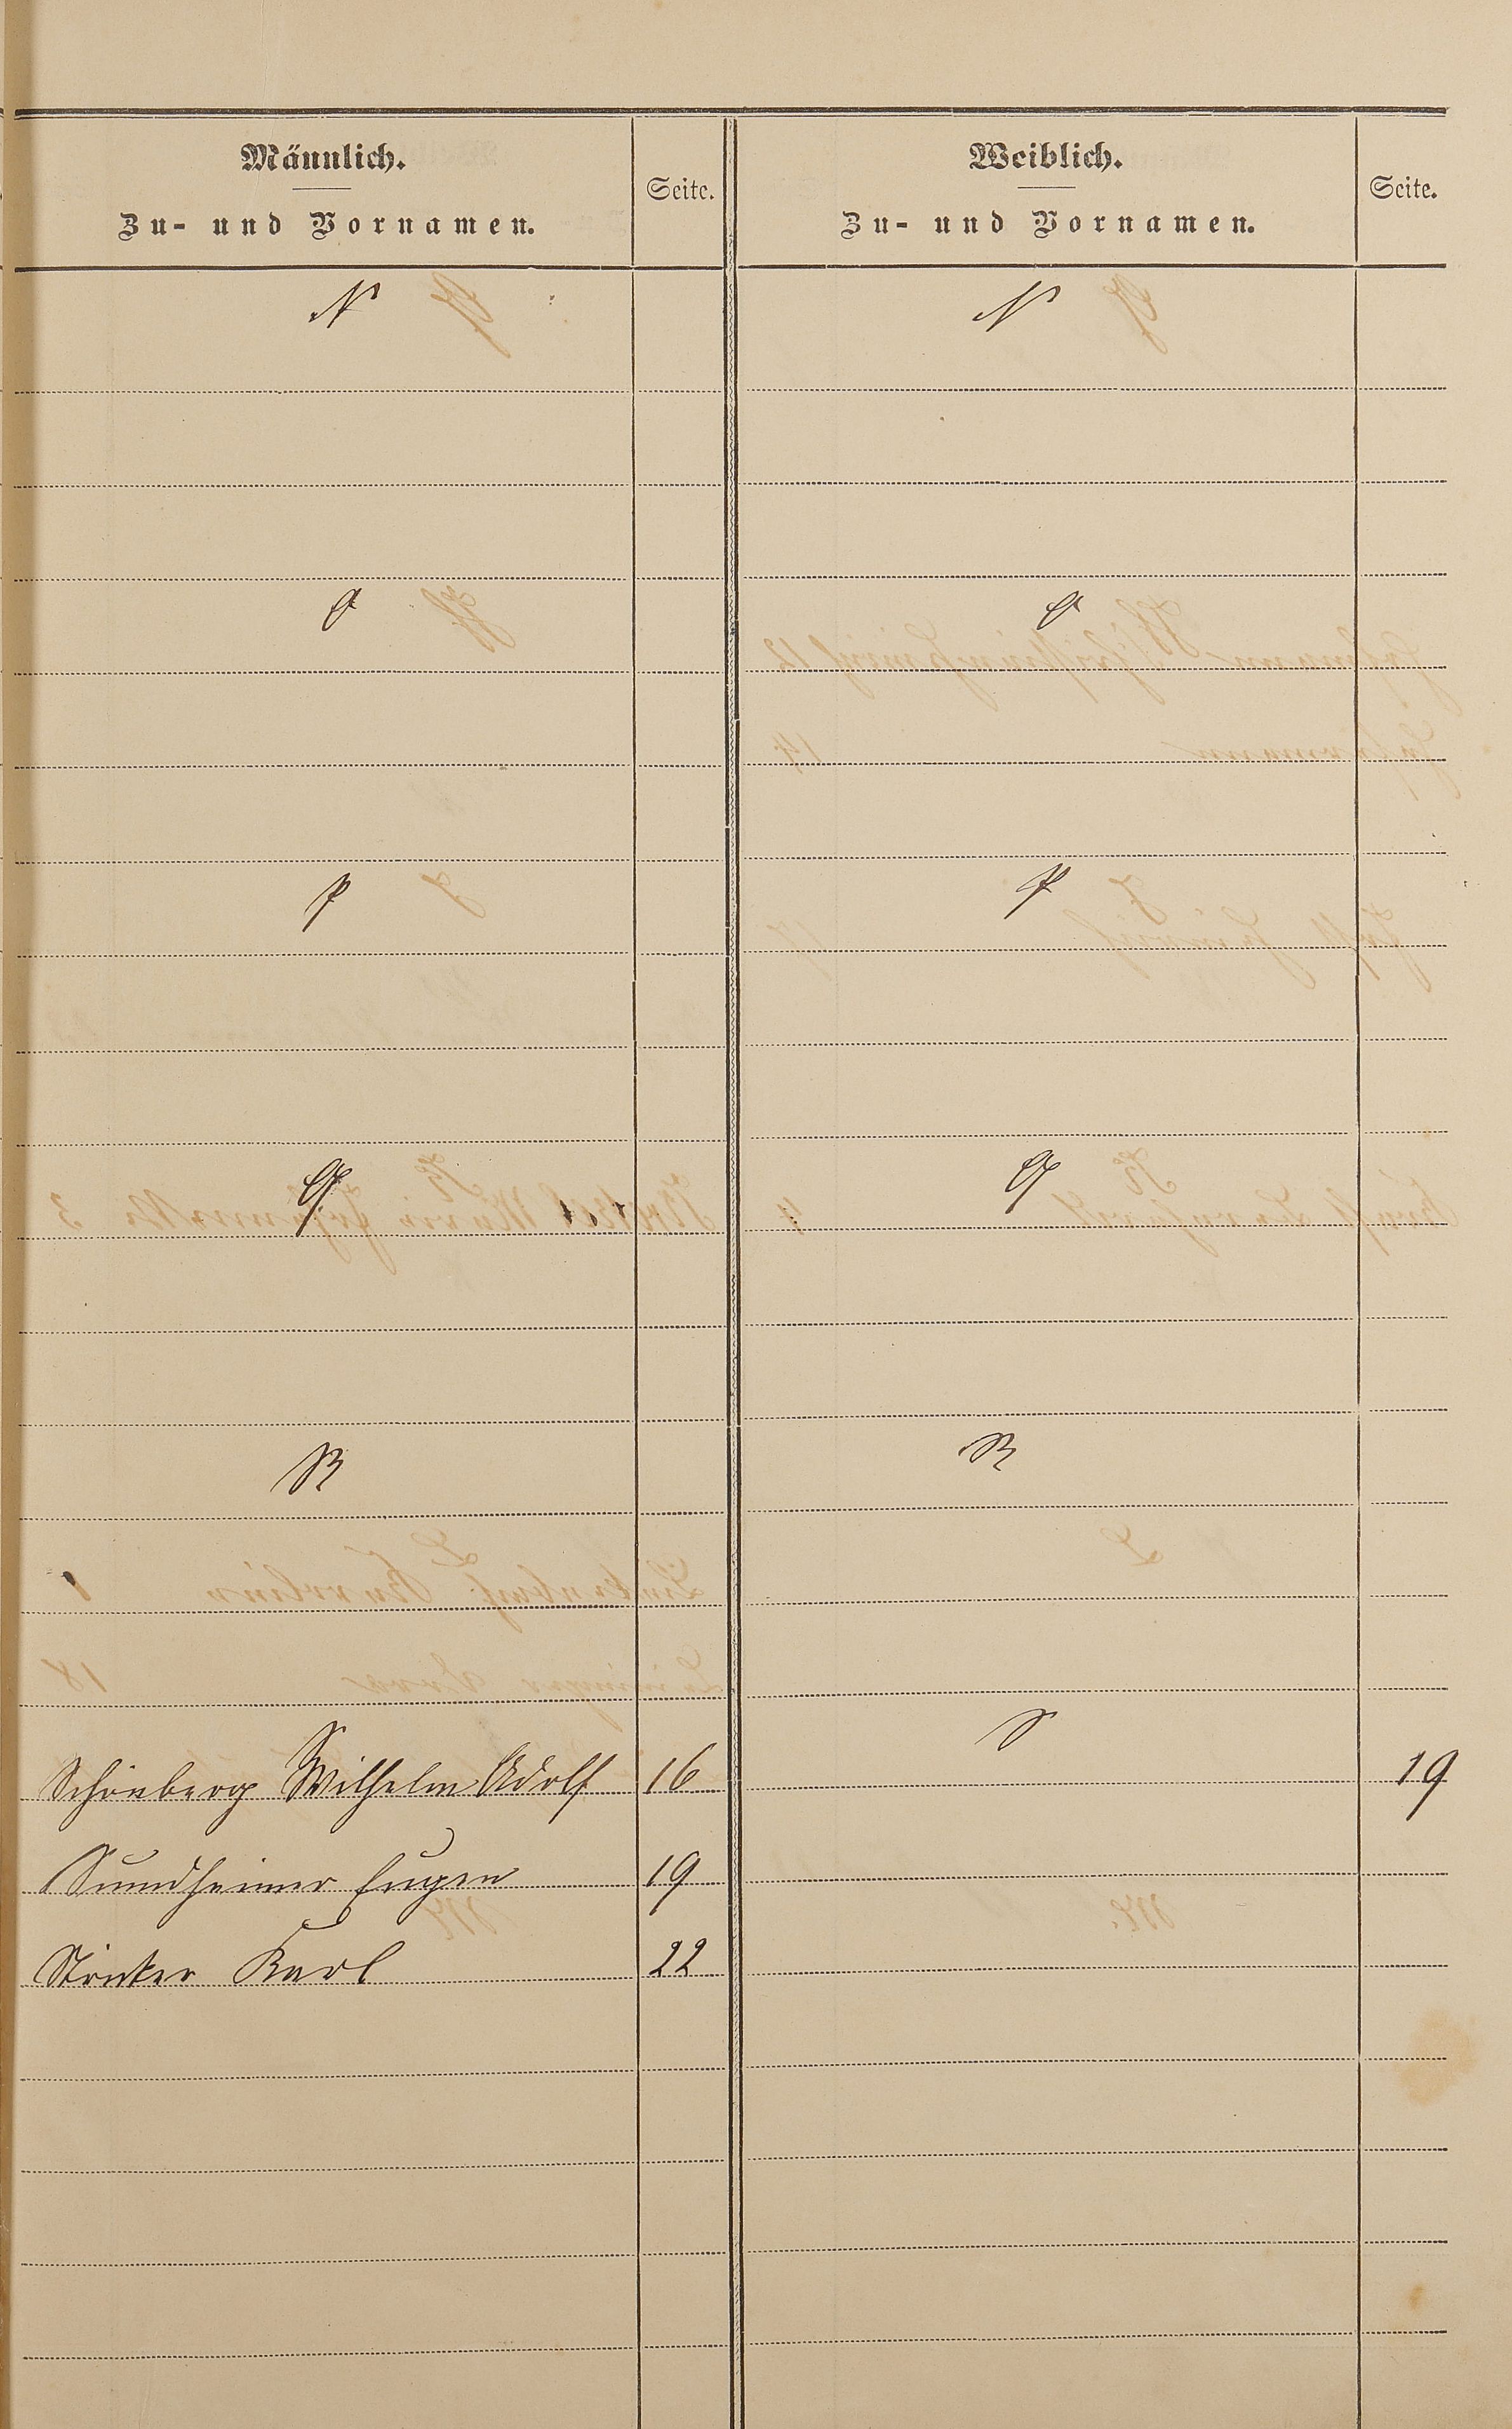 Männlich.
Zu- und Vornamen.
Seite.
Weiblich.
Zu- und Vornamen.
Seite.
N
N
O
O
P
P
Q
Q
R
R
S
S
Schönberg Wilhelm Adolf 16
19
Sundheimer Eugen 19
Karl 22